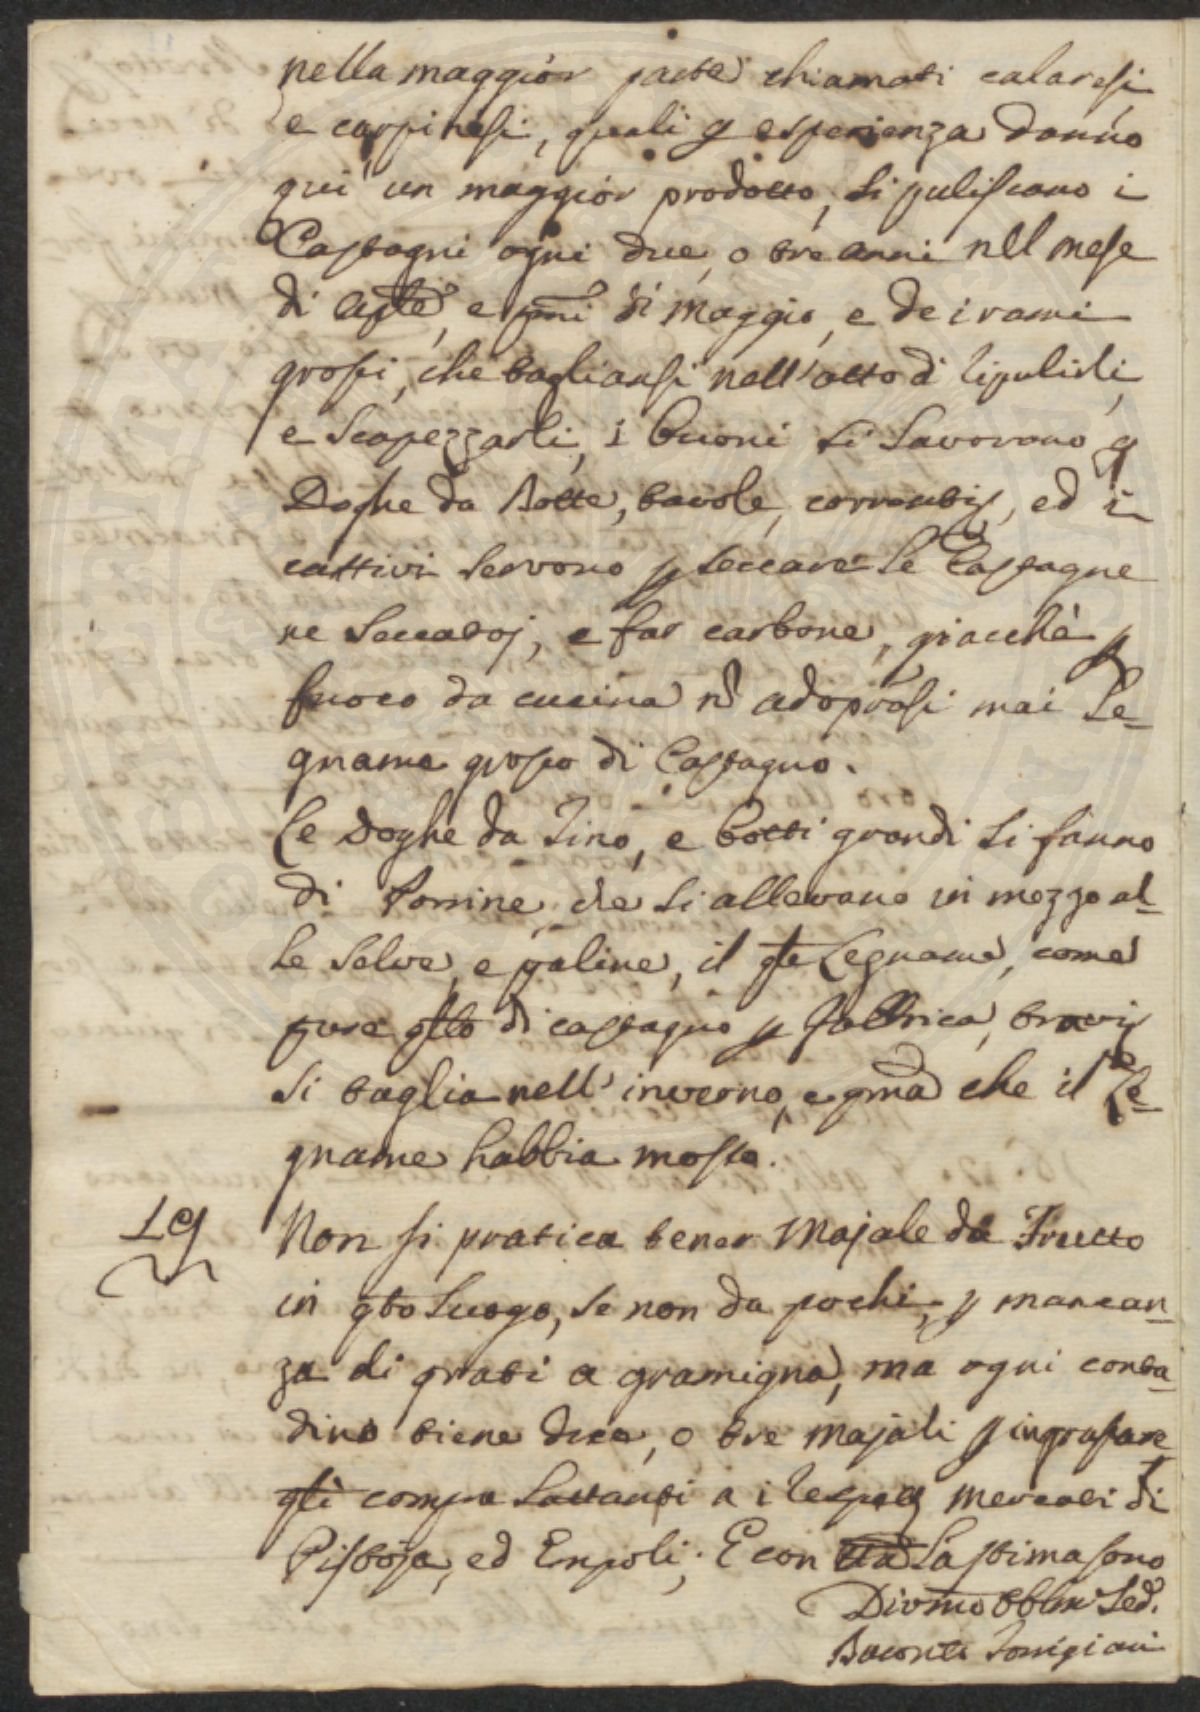 nella maggior parte chiamati calaresi
e carpinesi, quali p esperienza danno
qui un maggior prodotto, si puliscano i
Castagni ogni due, o tre anni nel mese
di Aple, e pmi di maggio, e de i rami
grossi, che tagliansi nell'atto di ripulirli,
e Scapezzarli, i buoni si lavorano p
Doghe da Botte, tavole, correnti, ed i
cattivi servono p seccare le Castagne
ne Seccatoj, e far carbone, giacchè p
fuoco da cucina nō adoprasi mai Le-
gname grosso di Castagno.
Le Doghe da Tino, e botti grandi si fanno
di Farnine, che si allevano in mezzo al-
le Selve, e paline, il qle Legname, come
pure qllo di castagno p fabbrica, travi
si taglia nell'inverno, e pma che il Le-
gname habbia mosso.
19 Non si pratica tener Majale da Frutto
in qto Luogo, se non da pochi, p mancan-
za di prati a gramigna, ma ogni conta-
dino tiene due, o tre majali p ingrassare
qli compra Lattanti a i mercati di
Pistoja, ed Enpoli; E con La stima sono
Divmo Obblmo Sed.